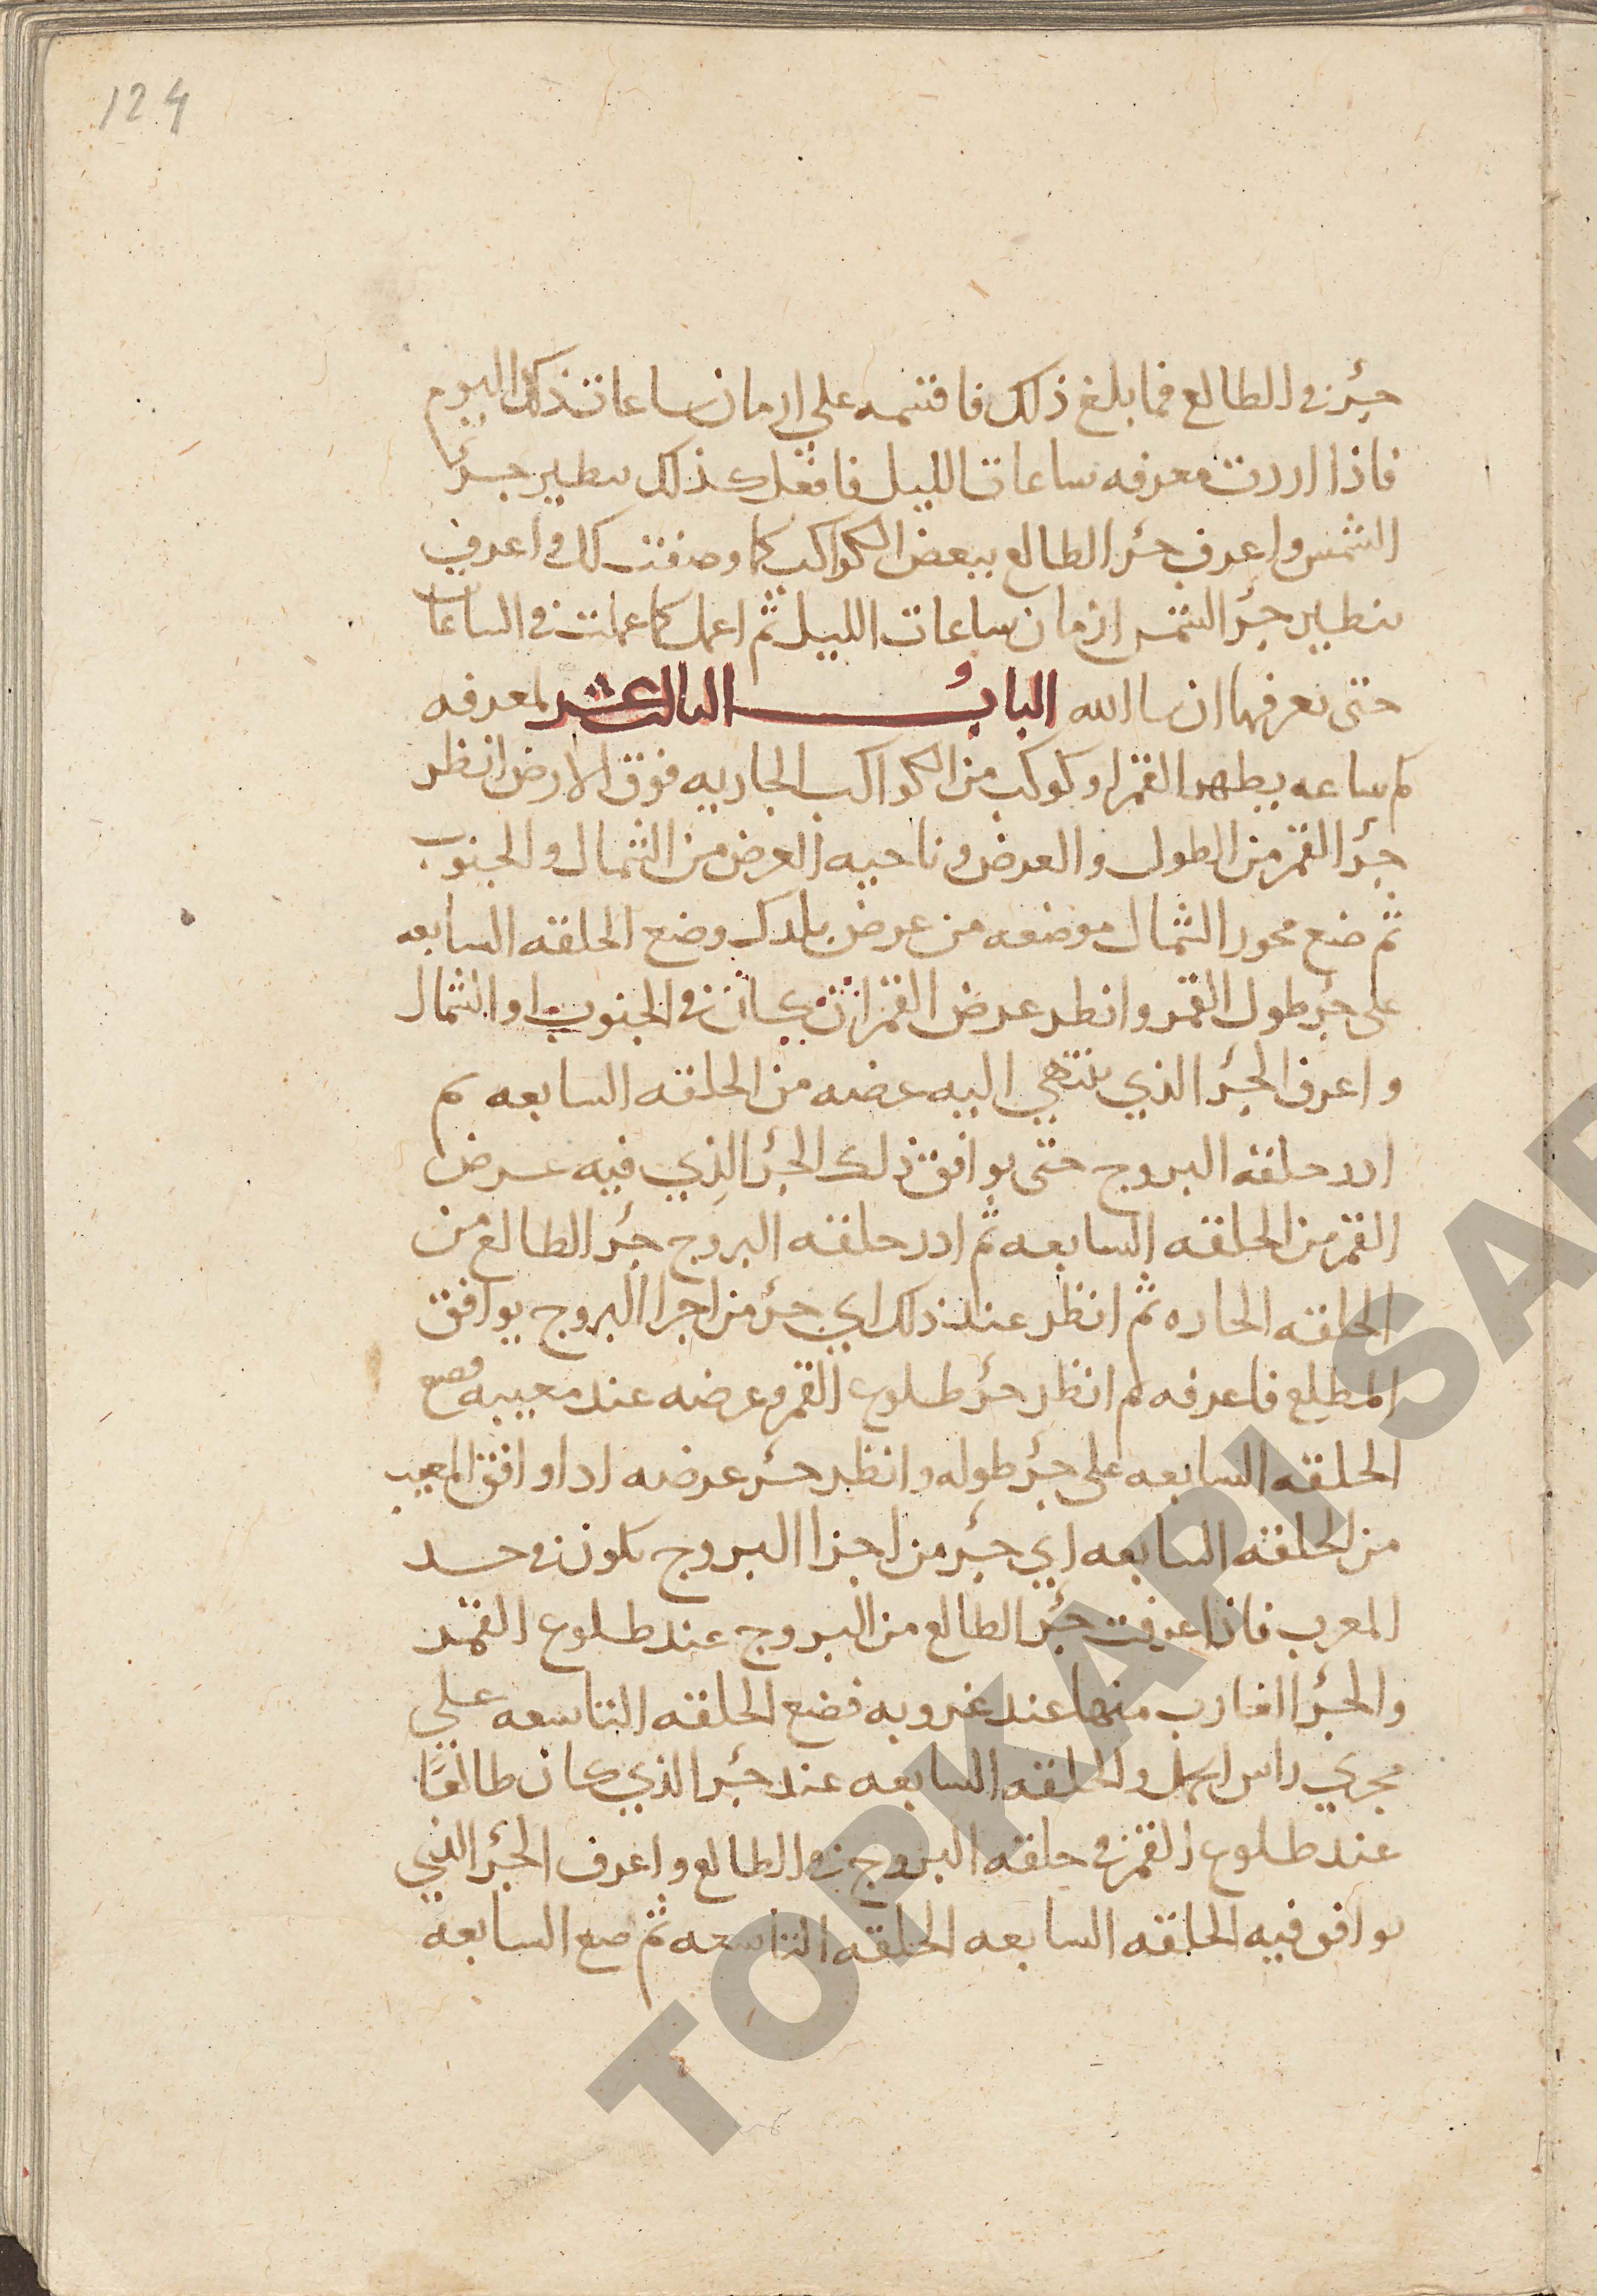 124
جزء في الطالع فما بلغ ذلك فاقسمه على ازمان ساعات ذلك اليوم
فاذا اردت معرفه ساعات الليل فافعل كذلك بنظير جزء
الشمس واعرف جزء الطالع ببعض الكواكب كما وصفت لك واعرف
بنظير جزء الشمس ازمان ساعات الليل ثم اعمل كما عملت في الساعات
حتى تعرفها ان شا الله الباب الثالث عشر لمعرفه
كم ساعه يظهر القمر او كوكب من الكواكب الجاريه فوق الارض انظر
جزء القمر من الطول والعرض وناحيه العرض من الشمال والجنوب
ثم ضع محور الشمال موضعه من عرض بلدك وضع الحلقه السابعه
على جزء طول القمر وانظر عرض القمر ان كان في الجنوب او الشمال
واعرف الجزء الذي ينتهي اليه عضه من الحلقه السابعه ثم
ادر حلقه البروج حتى يوافق ذلك الجزء الذي فيه عرض
القمر من الحلقه السابعه ثم ادر حلقه البروج جزء الطالع من
الحلقه الحاده ثم انظر عند ذلك اي جزء من اجزا البروج يوافق
المطلع فاعرفه ثم انظر جزء طلوع القمر وعرضه عند مغيبه فضع
الحلقه السابعه على جزء طوله وانظر جزء عرضه اذا وافق المغيب
من الحلقه السابعه اي جزء من اجزا البروج يكون في حد
المغرب فاذا عرفت جزء الطالع من البروج عند طلوع القمر
والجزء الغارب منها عند غروبه فضع الحلقه التاسعه علي
مجري راس الحمل والحلقه السابعه عند جزء الذي كان طالعًا
عند طلوع القمر في حلقه البروج في الطالع واعرف الجزء الذي
يوافق فيه الحلقه السابعه الحلقه التاسعه ثم ضع السابعه
TOPKAPI SAR